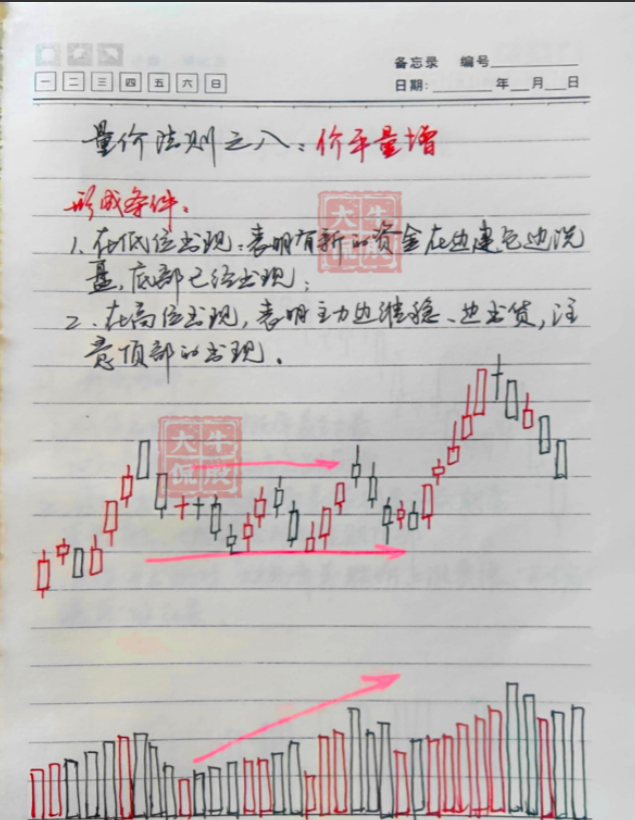 备忘录 编号
一 二 三 四 五 六 日
日期: 年 月 日
量价法则之八：价平量增
形成条件：
1、在低位出现：表明有新的资金在边建仓边洗
盘，底部已经出现；
2、在高位出现，表明主力边维稳、边出货，注
意顶部的出现。
大牛
侃股
大牛
侃股